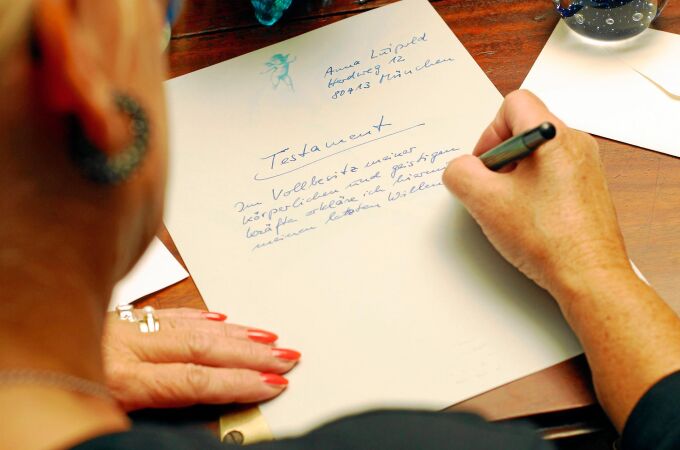 Anna Luipold
Herdweg 12
80413 München
Testament
Im Vollbesitz meiner
körperlichen und geistigen
kräfte erkläre ich hiermit
meinen letzten Willen